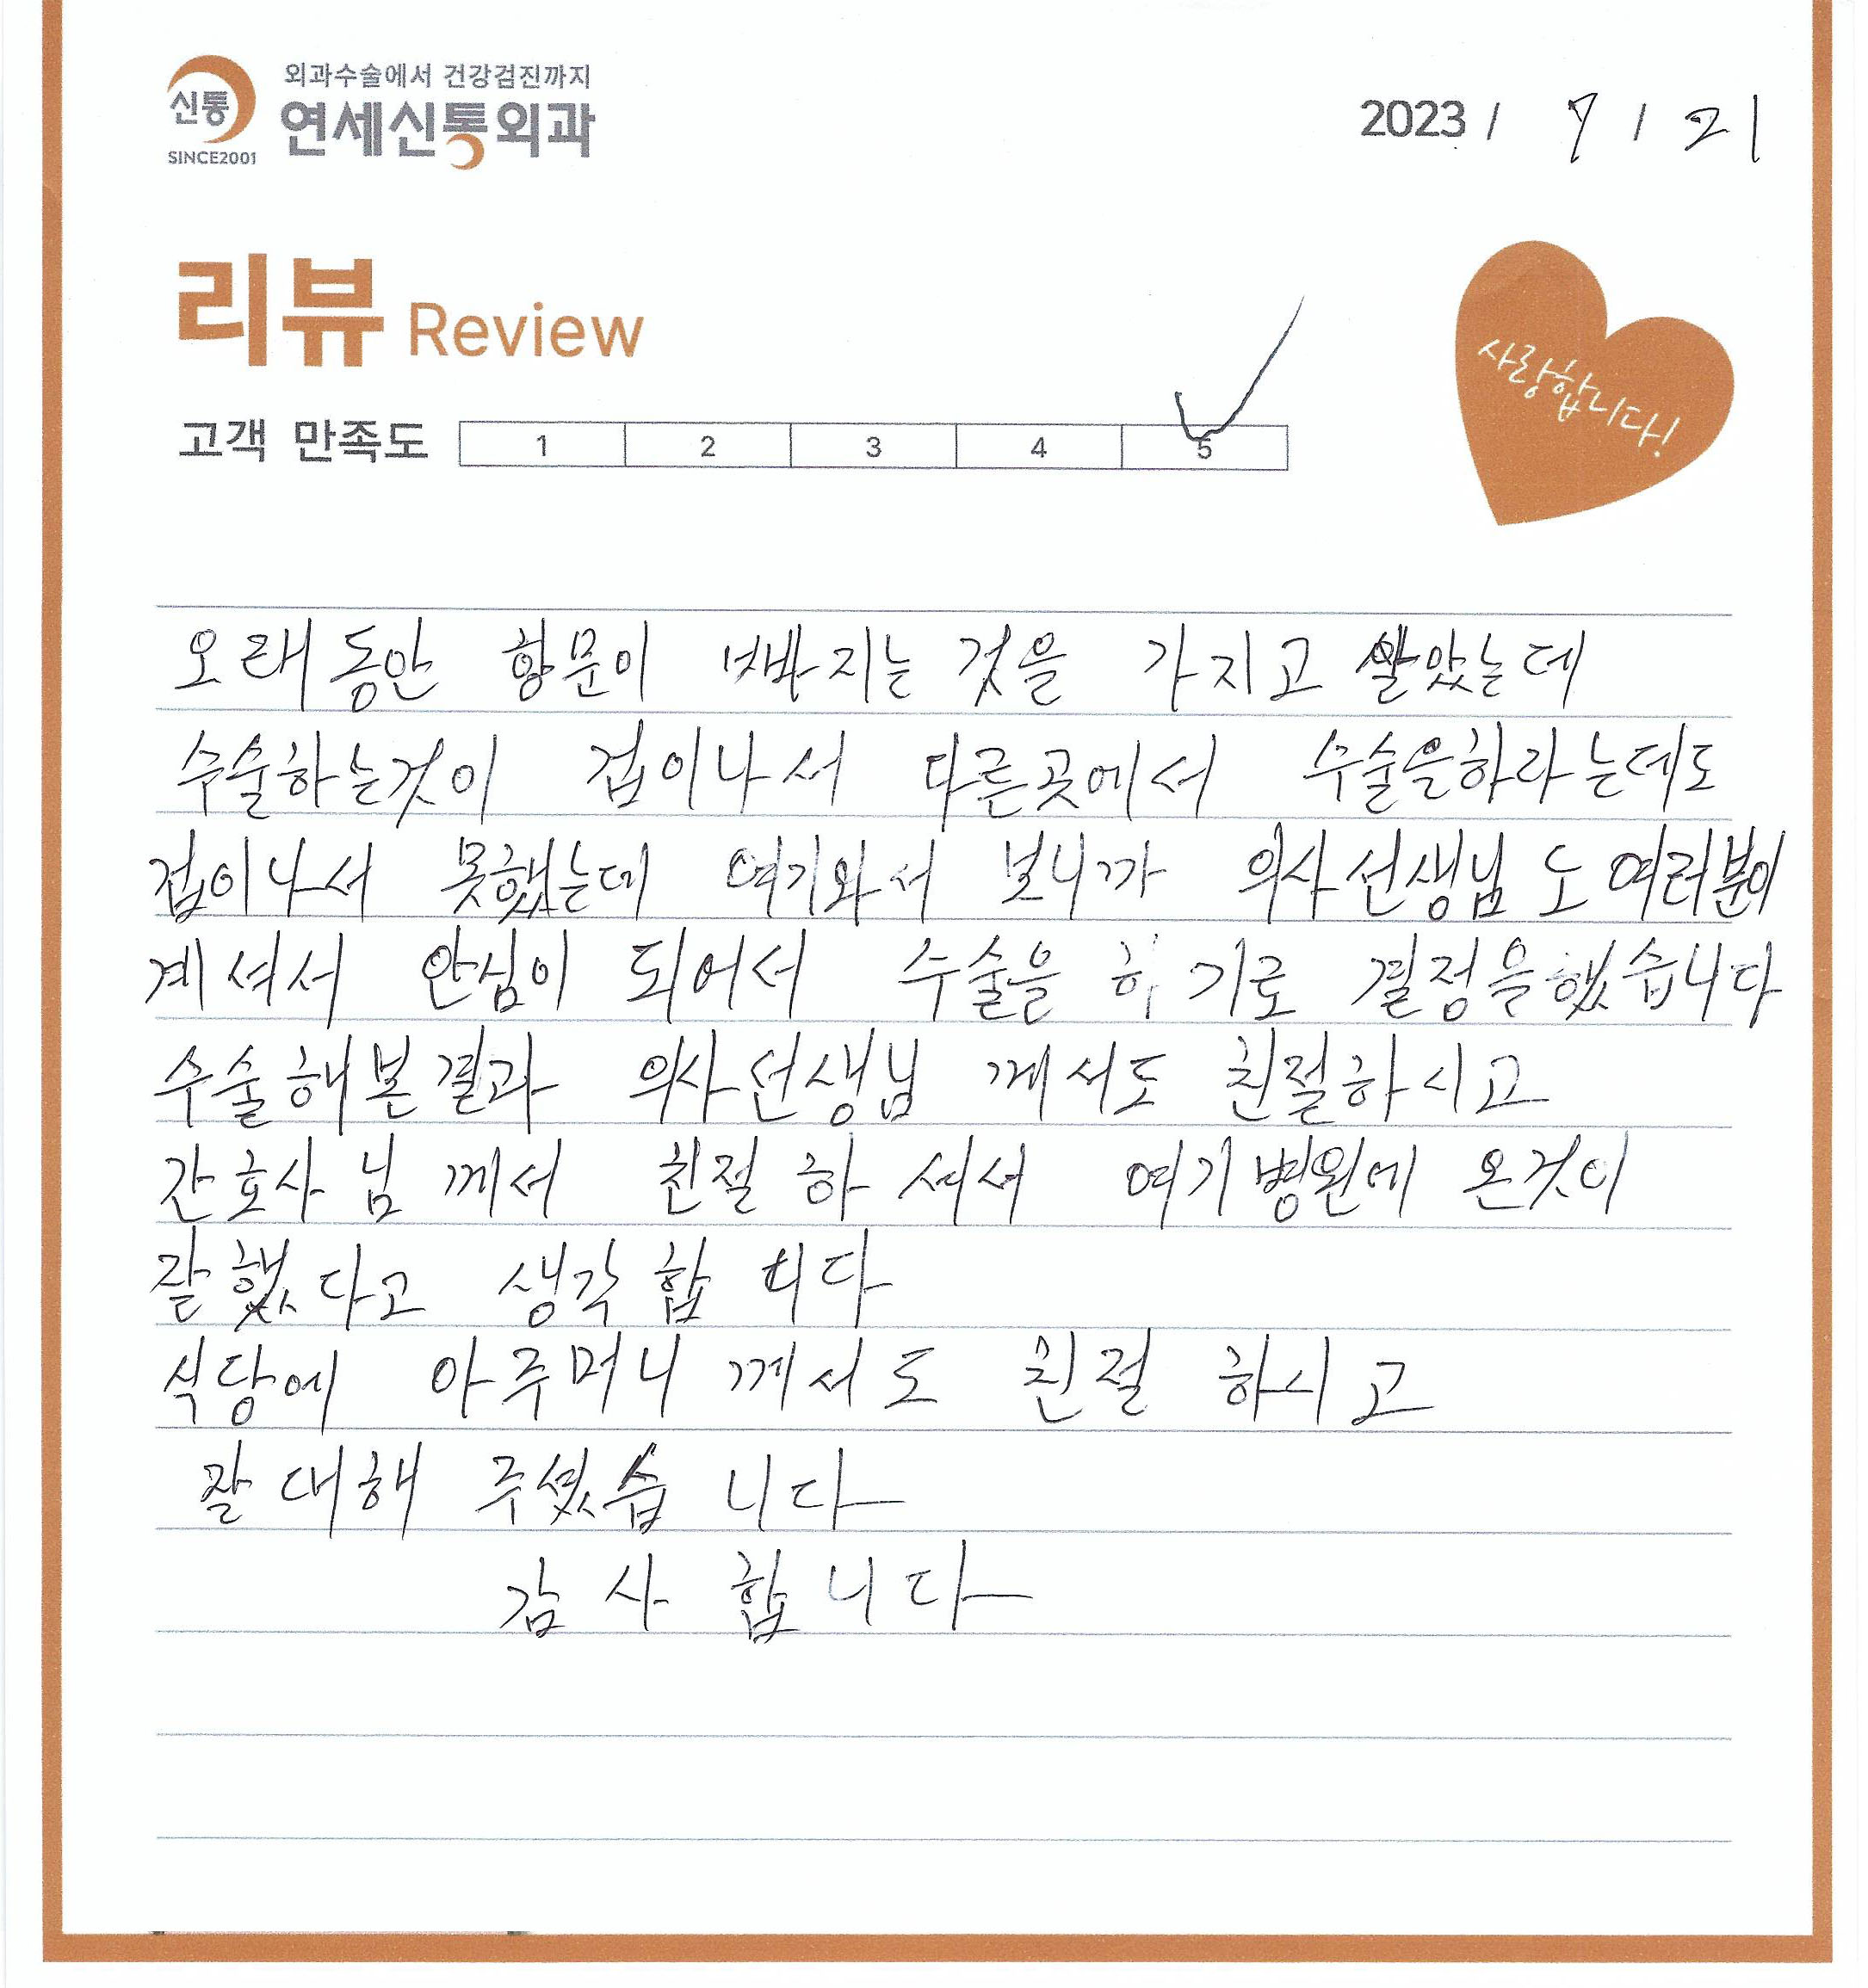 외과수술에서 건강검진까지
신통 연세신통외과
SINCE2001
2023 / 7 / 21
리뷰 Review
사랑합니다!
고객 만족도 1 2 3 4 5
오래동안 항문이 빠지는 것을 가지고 살았는데
수술하는것이 겁이나서 다른곳에서 수술을하라는데도
겁이나서 못했는데 여기와서 보니까 의사선생님도 여러분이
계셔서 안심이 되어서 수술을 하기로 결정을했습니다
수술해본결과 의사선생님 께서도 친절하시고
간호사님 께서 친절하셔서 여기병원에 온것이
잘했다고 생각합니다
식당에 아주머니 께서도 친절 하시고
잘대해 주셨습니다
감사합니다